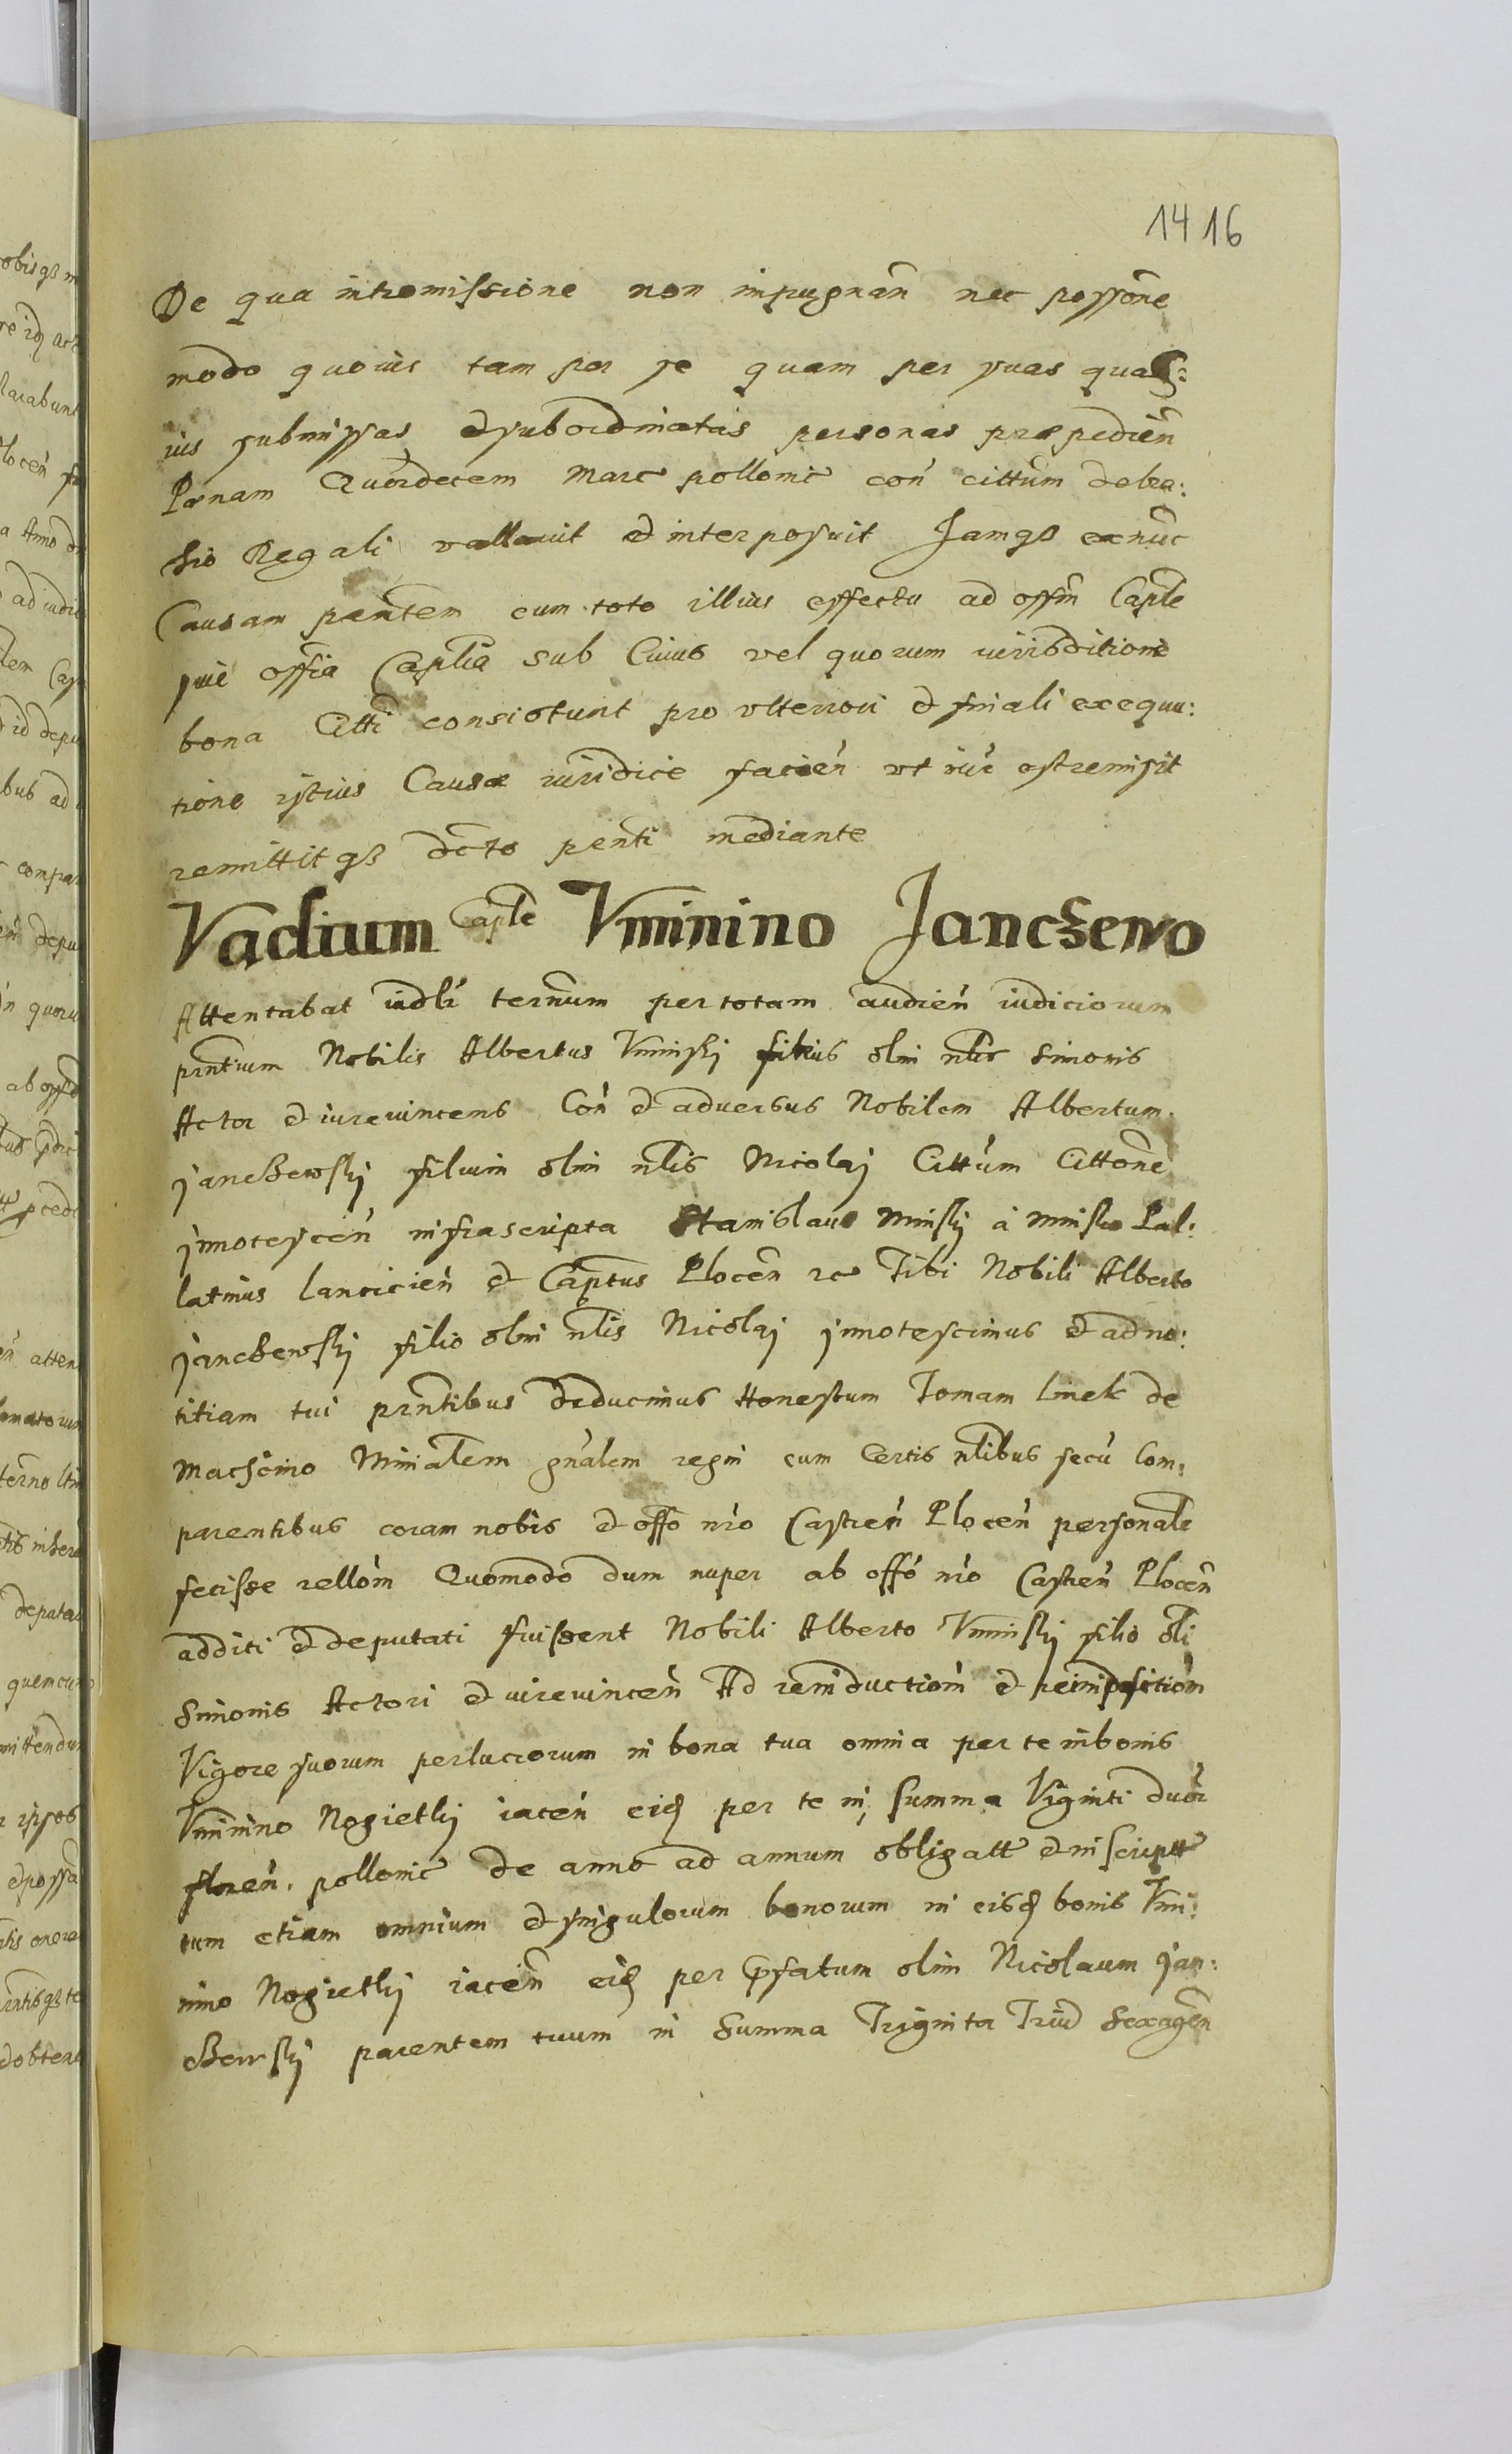 1416
De qua intromissione non impugnan̄ nec possōne
modo quouis tam per se quam per suas quas:
uis submissas et subordinatas personas praepedien̄
Pœnam Quordecem Marc pollonic con̄ cittum debra:
hio Regali vallauit et interposuit Jamqȝ exnūc
Causam pn̄tem cum toto illius effectu ad offm̄ Caple
siue offia Caplia sub Cuius vel quorum iurisditione
bona Citti consistunt pro vlteriori et finali exequu:
tione istius Causæ iuridice facien̄ vt iur̄ est remisit
remittitqȝ dcto pn̄ti mediante
Vadium Caple Vminino Janczewo
Attentabat iudlr̄ ternum per totam audien̄ iudiciorum
pn̄tium Nobilis Albertus Vminskj filius olim nlis Simonis
Actor et iurevincens Con̄ et adversus Nobilem Albertum
janczewskj filium olim nlis Nicolaj Cittum Cittone
jnnotescen̄ infrascripta Stanislaus Minskj a Minsko Pal:
latinus lancicien̄ et Captus Plocen̄ rc Tibi Nobili Alberto
janczewskj filio olim nlis Nicolaj jnnotescimus et ad no:
titiam tui pn̄tibus deducimus Honestum Tomam linek de
Machcino Mini̅alem gn̄alem regni cum Certis nlibus secu̅ Com:
parentibus coram nobis et offo nr̄o Castren̄ Plocen̄ personalr
fecisse rellōm Quomodo dum nuper ab offo nr̄o Castren̄ Plocen̄
additi et deputati fuissent Nobili Alberto Vminskj filio oli
Simonis Actori et iurevincen̄ Ad reinductiōm et
Vigore suorum perlucrorum in bona tua omnia per te in bonis
Vminino Nogietkj iacen̄ eisȝ per te in summa Viginti duor
floren̄. pollonic de anno ad annum obligatt et inscriptt
tum etiam omnium et singulorum bonorum in eisȝ bonis Vmi:
nino Nogietkj iacen̄ eisȝ per Ppfatum olim Nicolaum Jan:
czewskj parentem tuum in Summa Triginta Triu̅ Sexagen̄